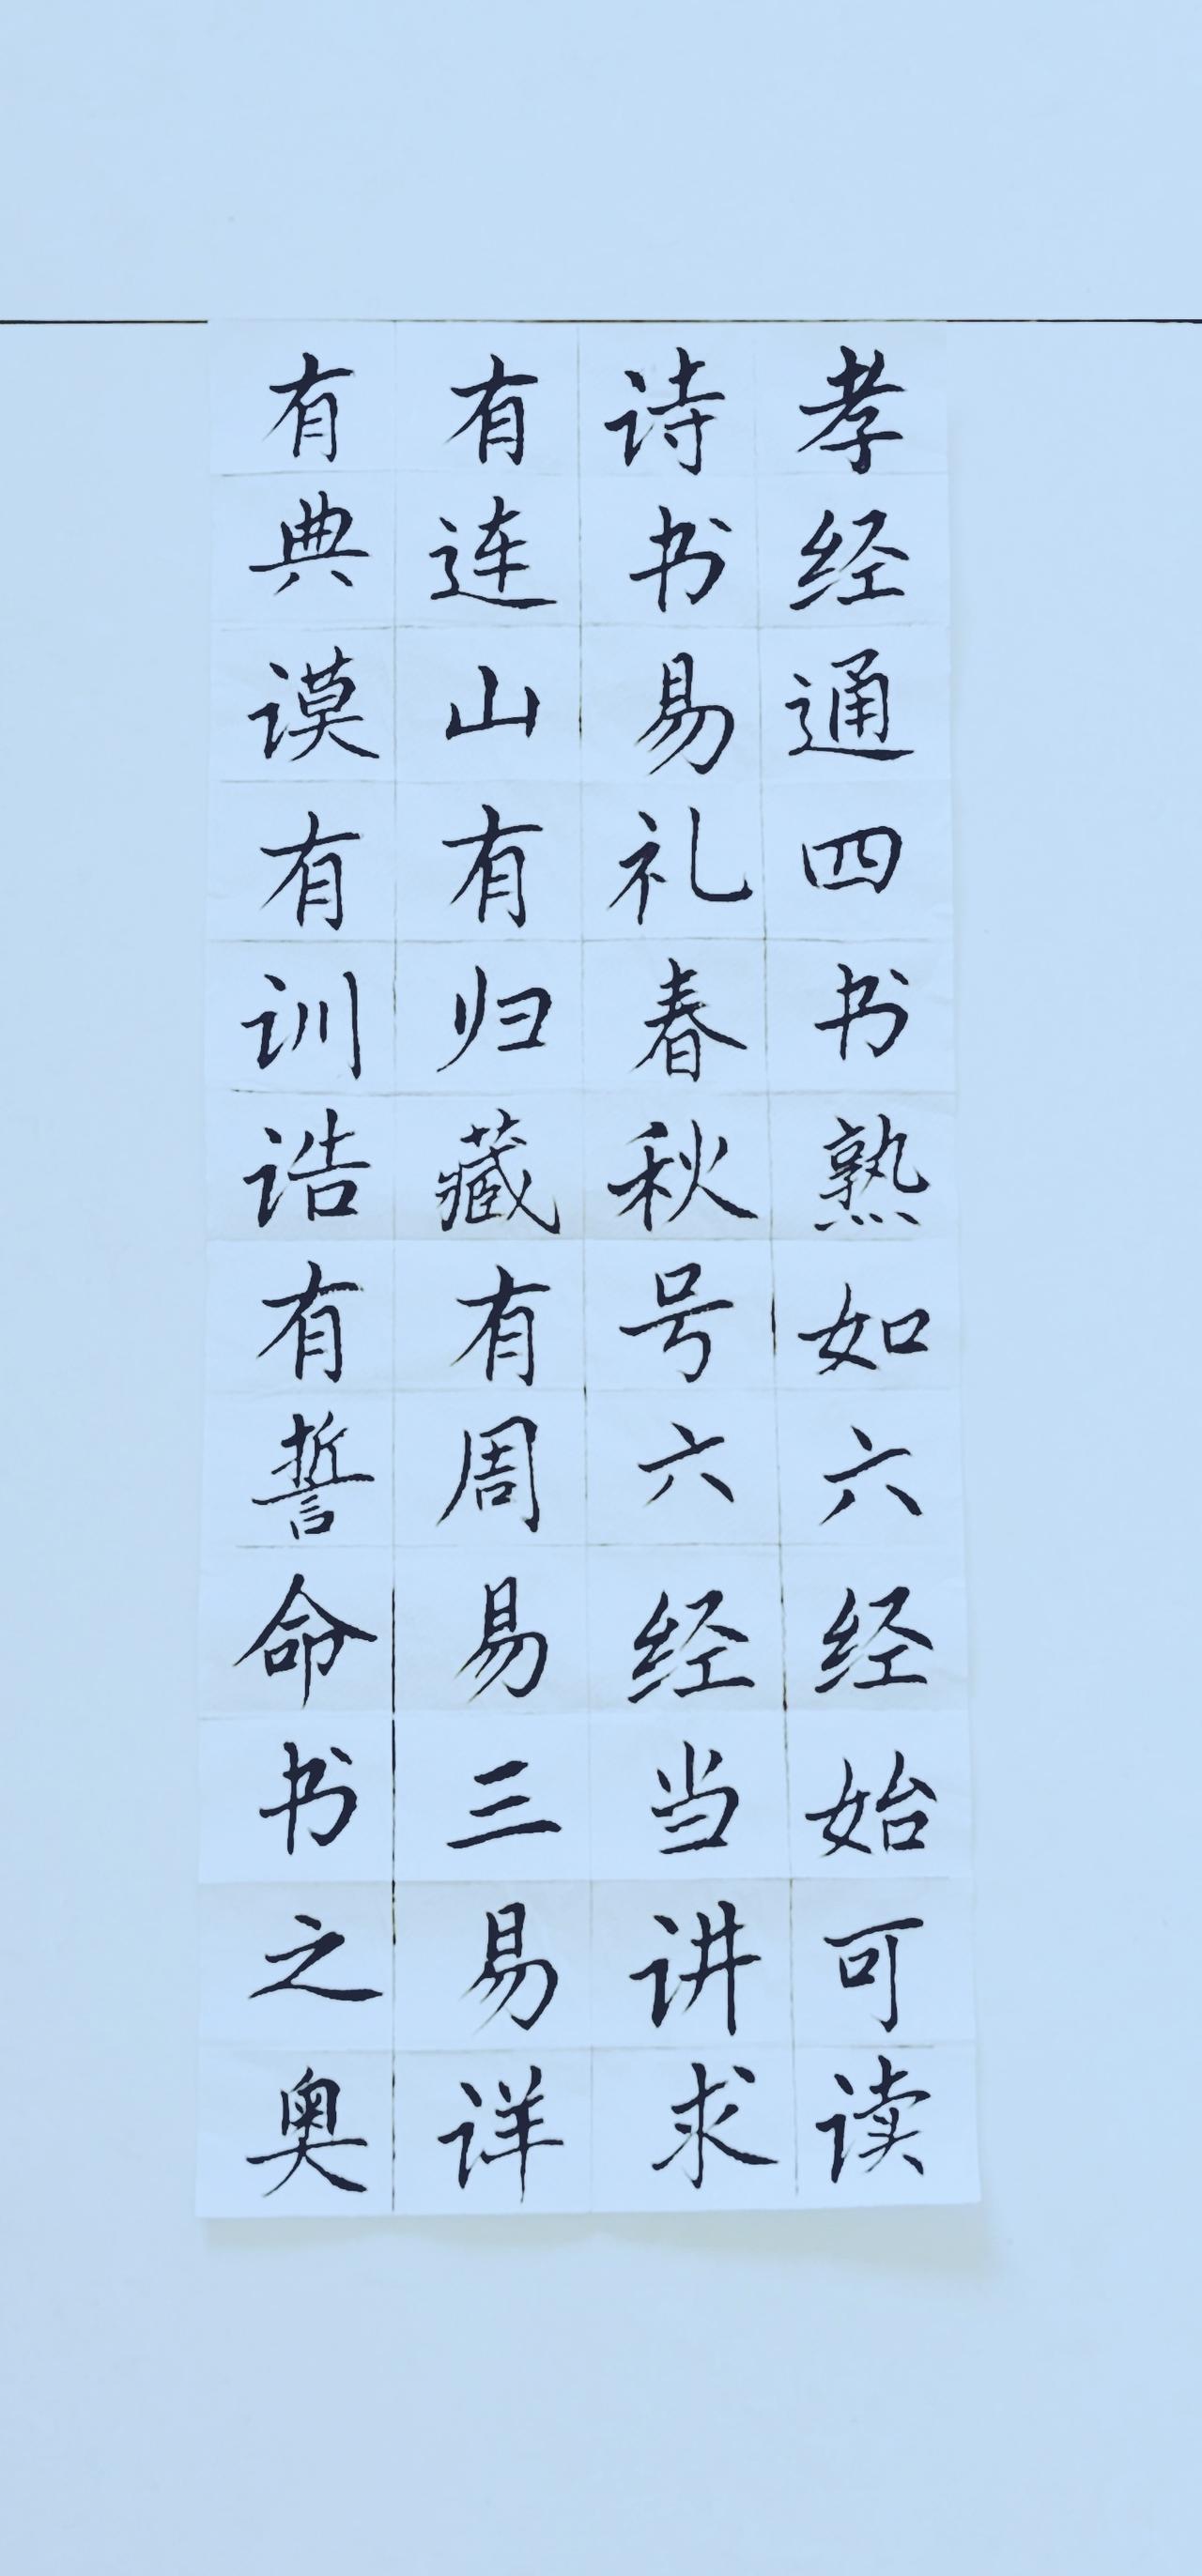 孝经通四书熟如六经始可读
诗书易礼春秋号六经当讲求
有连山有归藏有周易三易详
有典谟有训诰有誓命书之奥